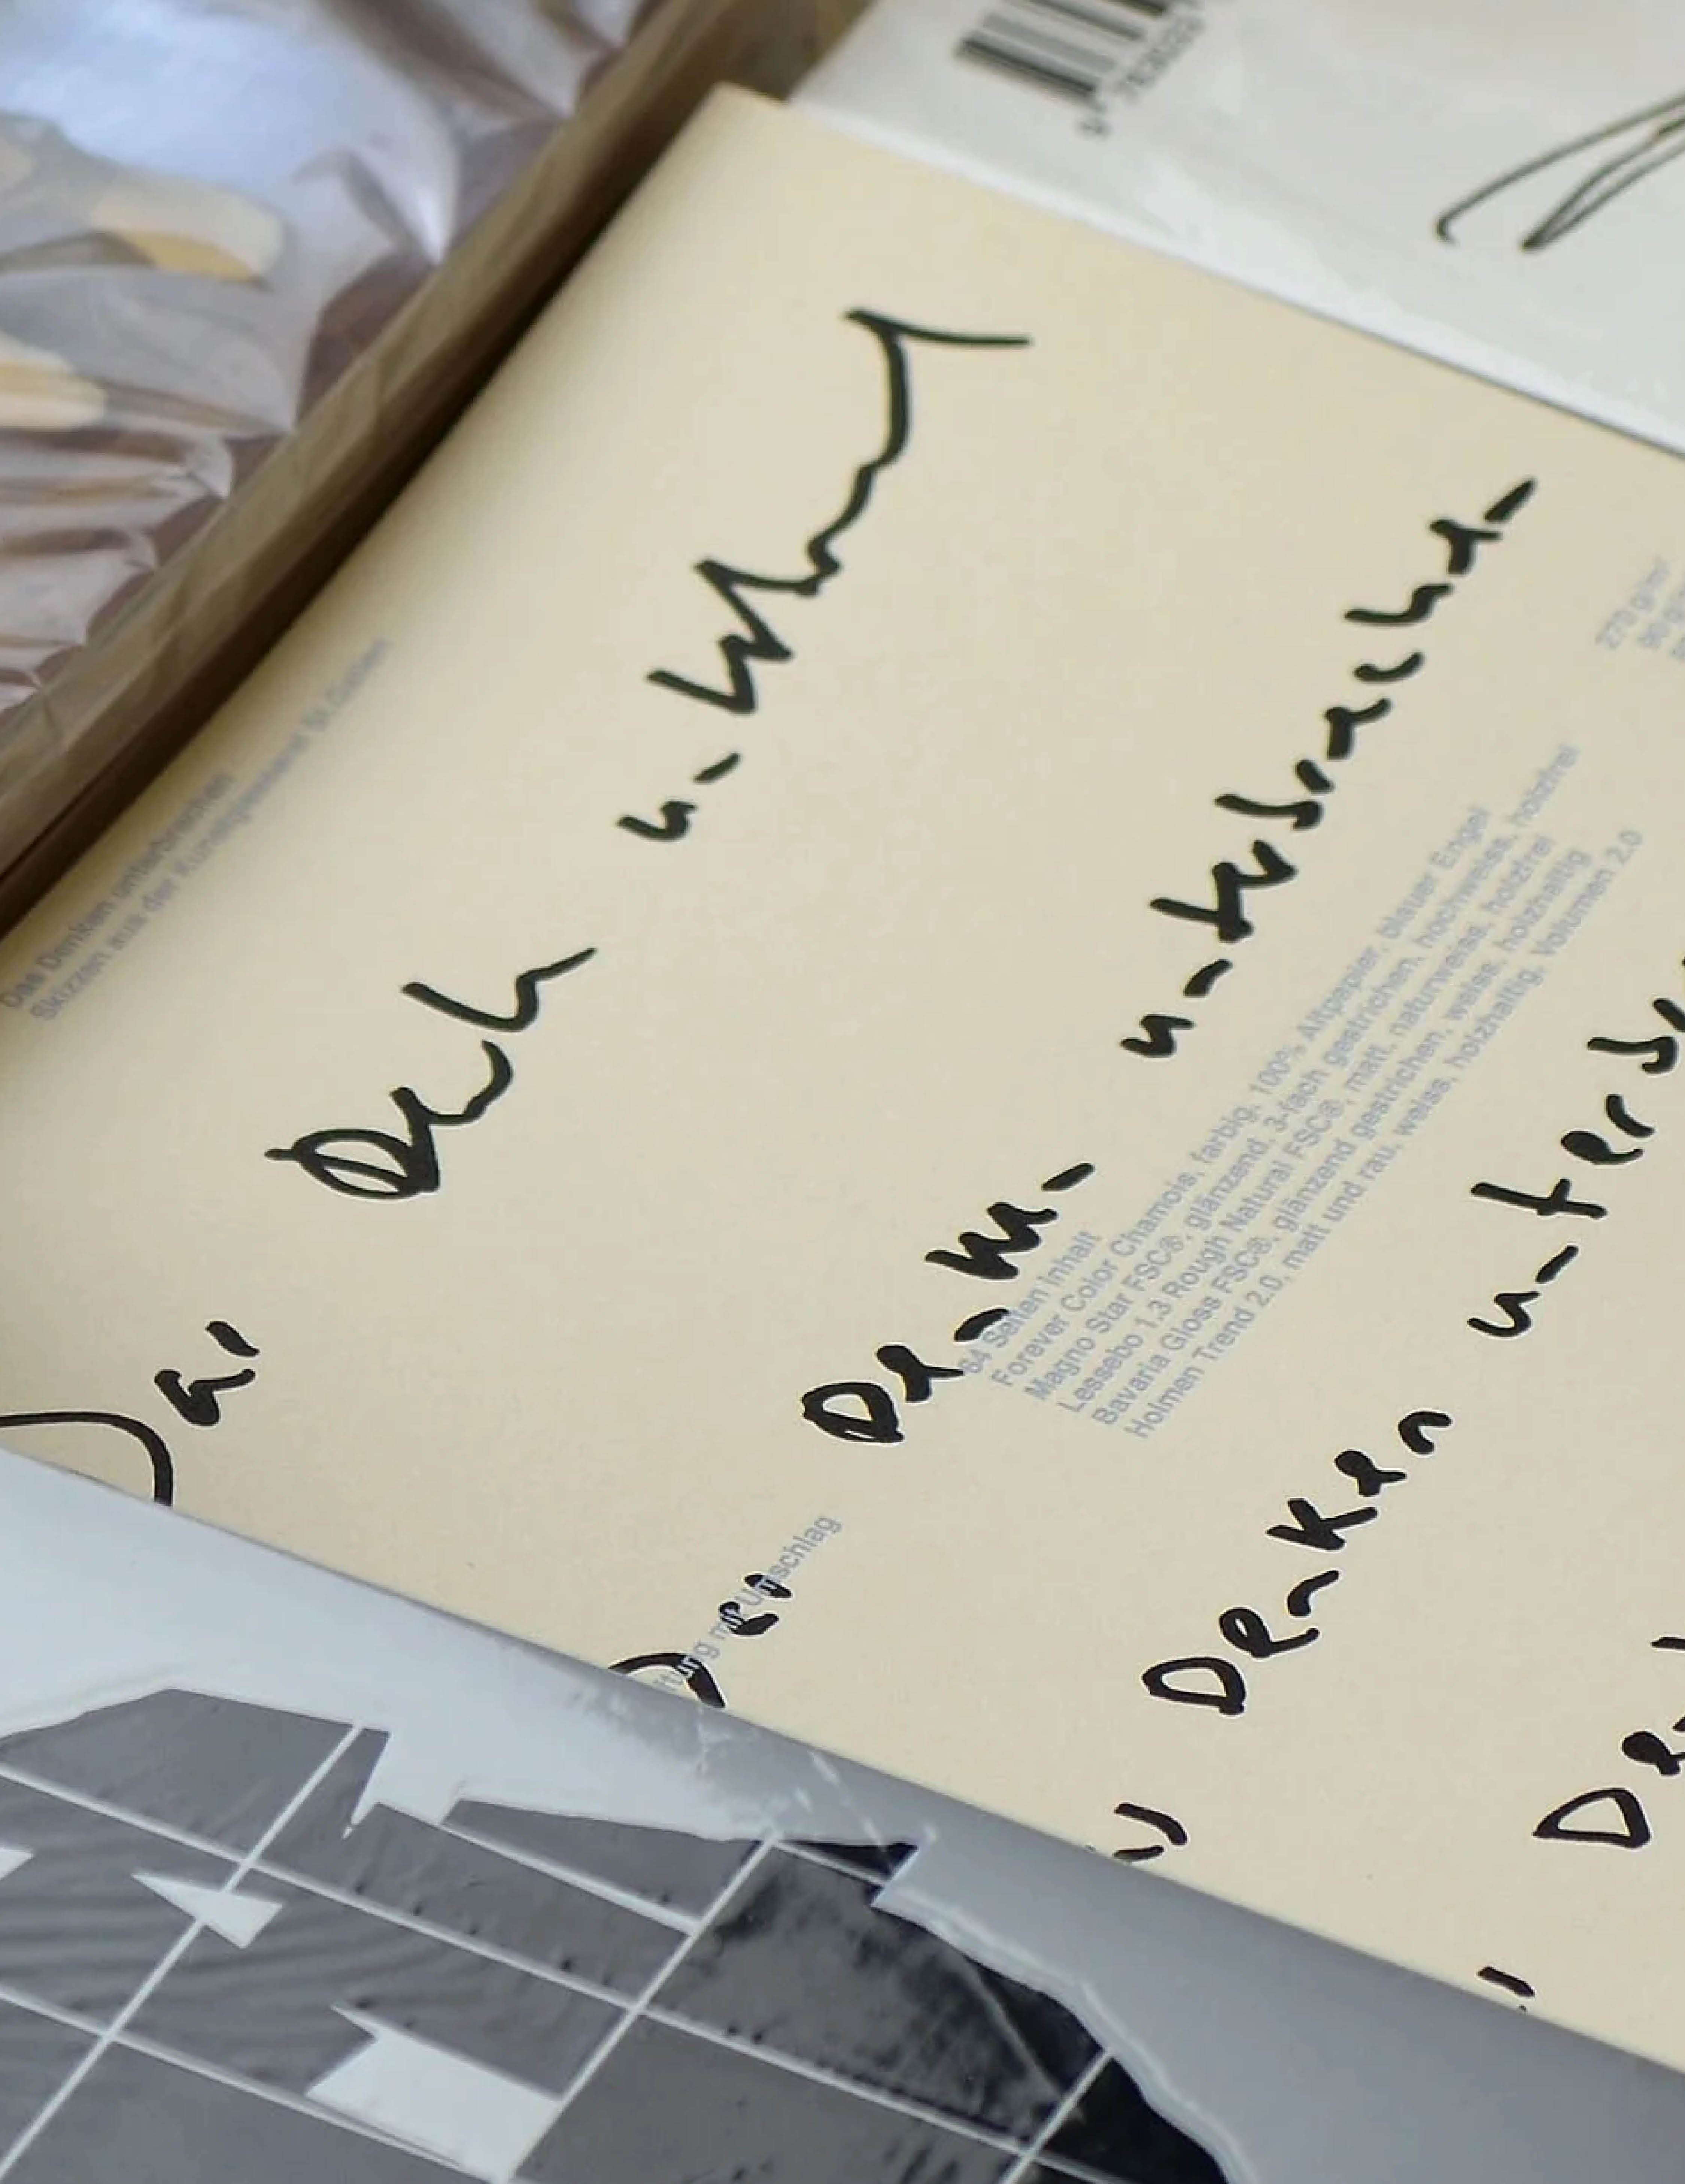 Das Denken unterbrechen
Skizzen aus der Kunstgiesserei St.Gallen
Das Denken
Das Denken unterbrechen
Denken unter
64 Seiten Inhalt
Forever Color Chamois, farbig, 100% Altpapier, blauer Engel
Magno Star FSC®, glänzend, 3-fach gestrichen, hochweiss, holzfrei
Lessebo 1.3 Rough Natural FSC®, matt, naturweiss, holzfrei
Bavaria Gloss FSC®, glänzend gestrichen, weiss, holzhaltig
Holmen Trend 2.0, matt und rau, weiss, holzhaltig, Volumen 2.0
270 g/m²
90 g/
mit Umschlag